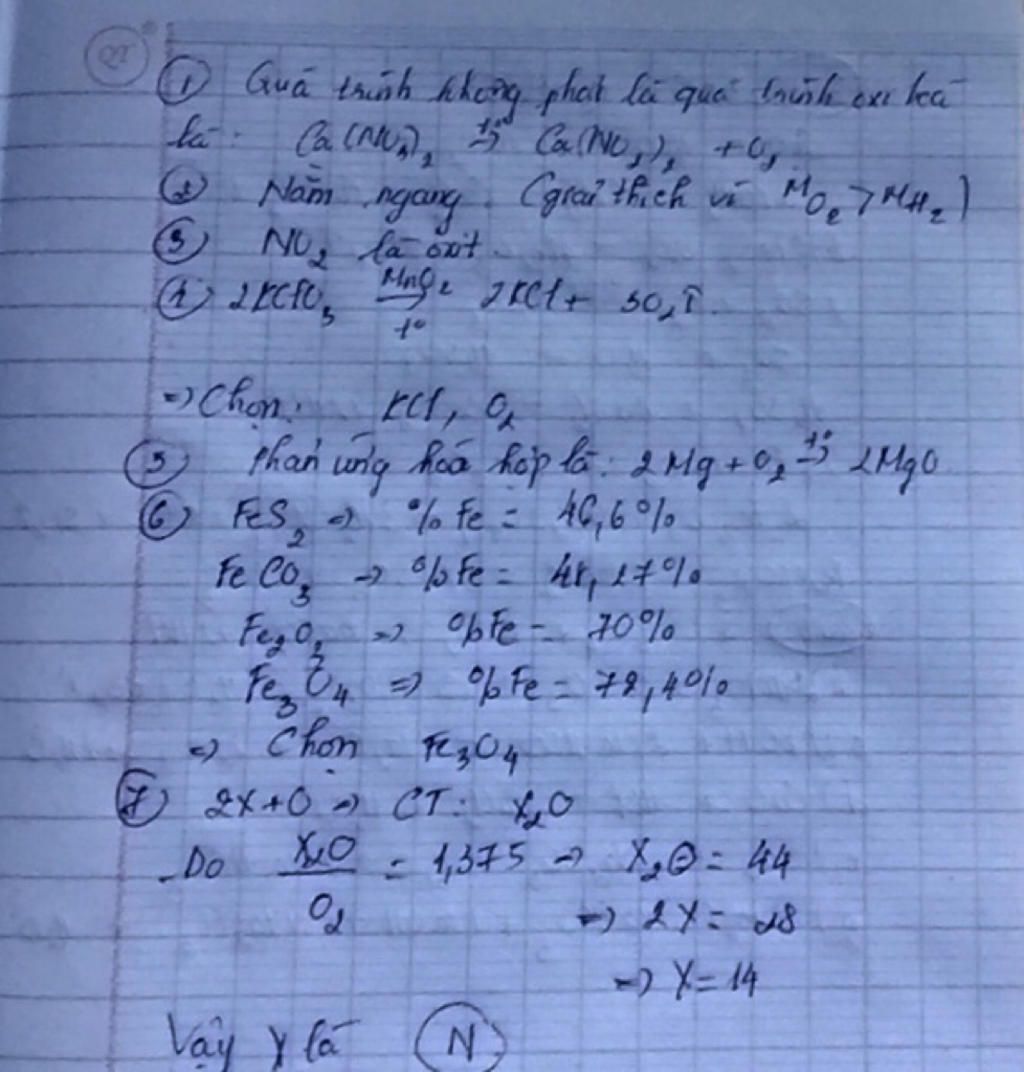 ① Quá trình không phải là quá trình oxi hoá
là: Ca(NO₃)₂ t°→ Ca(NO₂)₂ + O₂
② Nằm ngang. (giải thích vì M O₂ > M H₂)
③ NO₂ là oxit.
④ 2KClO₃ MnO₂→t° 2KCl + 3O₂↑.
=> Chọn: KCl, O₂
⑤ Phản ứng hoá hợp là: 2Mg + O₂ t°→ 2MgO
⑥ FeS₂ => %Fe = 46,6%
FeCO₃ -> %Fe = 48,27%
Fe₂O₃ => %Fe = 70%
Fe₃O₄ => %Fe = 72,4%
=> Chọn Fe₃O₄
⑦ 2X + O => CT: X₂O
Do X₂O/O₂ = 1,375 => X₂O = 44
=> 2X = 28
=> X = 14
Vậy X là N